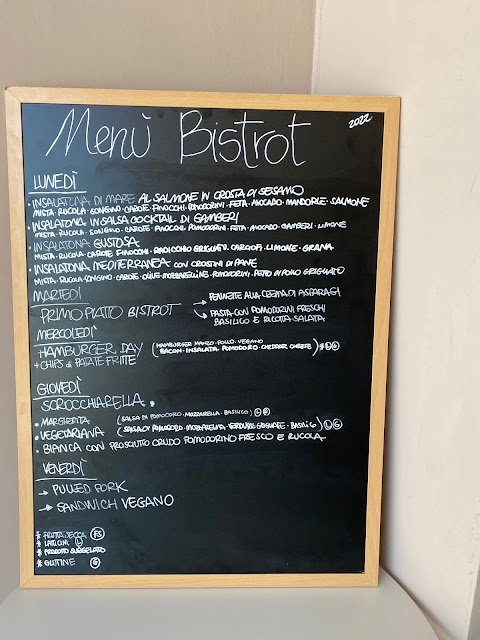 Menù Bistrot
2022
LUNEDÌ
• INSALATONA DI MARE AL SALMONE IN CROSTA DI SESAMO
MISTA • RUCOLA • SONGINO • CAROTE • FINOCCHI • POMODORINI • FETA • AVOCADO • MANDORLE • SALMONE
• INSALATONA IN SALSA COCKTAIL DI GAMBERI
MISTA • RUCOLA • SONGINO • CAROTE • FINOCCHI POMODORINI • FETA • AVOCADO • GAMBERI • LIMONE
• INSALATONA GUSTOSA
MISTA • RUCOLA CAROTE FINOCCHI • RADICCHIO GRIGLIATO • CARCIOFI • LIMONE • GRANA
• INSALATONA MEDITERRANEA CON CROSTINI DI PANE
MISTA • RUCOLA SONGINO • CAROTE • OLIVE • MOZZARELLINE • POMODORINI • PETTO DI POLLO GRIGLIATO
MARTEDÌ
PRIMO PIATTO BISTROT
→ PENNETTE ALLA CREMA DI ASPARAGI
→ PASTA CON POMODORINI FRESCHI
BASILICO E RICOTTA SALATA
MERCOLEDÌ
HAMBURGER DAY
(HAMBURGER MANZO • POLLO • VEGANO
BACON • INSALATA • POMODORO • CHEDDAR CHEESE) * L G
+ CHIPS di PATATE FRITTE
GIOVEDÌ
SCROCCHIARELLA *
• MARGHERITA (SALSA DI POMODORO • MOZZARELLA • BASILICO) L G
• VEGETARIANA (SALSA DI POMODORO • MOZZARELLA • VERDURE GRIGLIATE • BASILICO) L G
• BIANCA CON PROSCIUTTO CRUDO POMODORINO FRESCO E RUCOLA
VENERDÌ
→ PULLED PORK
→ SANDWICH VEGANO
* FRUTTA SECCA FS
* LATTICINI L
* PRODOTTO SURGELATO
* GLUTINE G